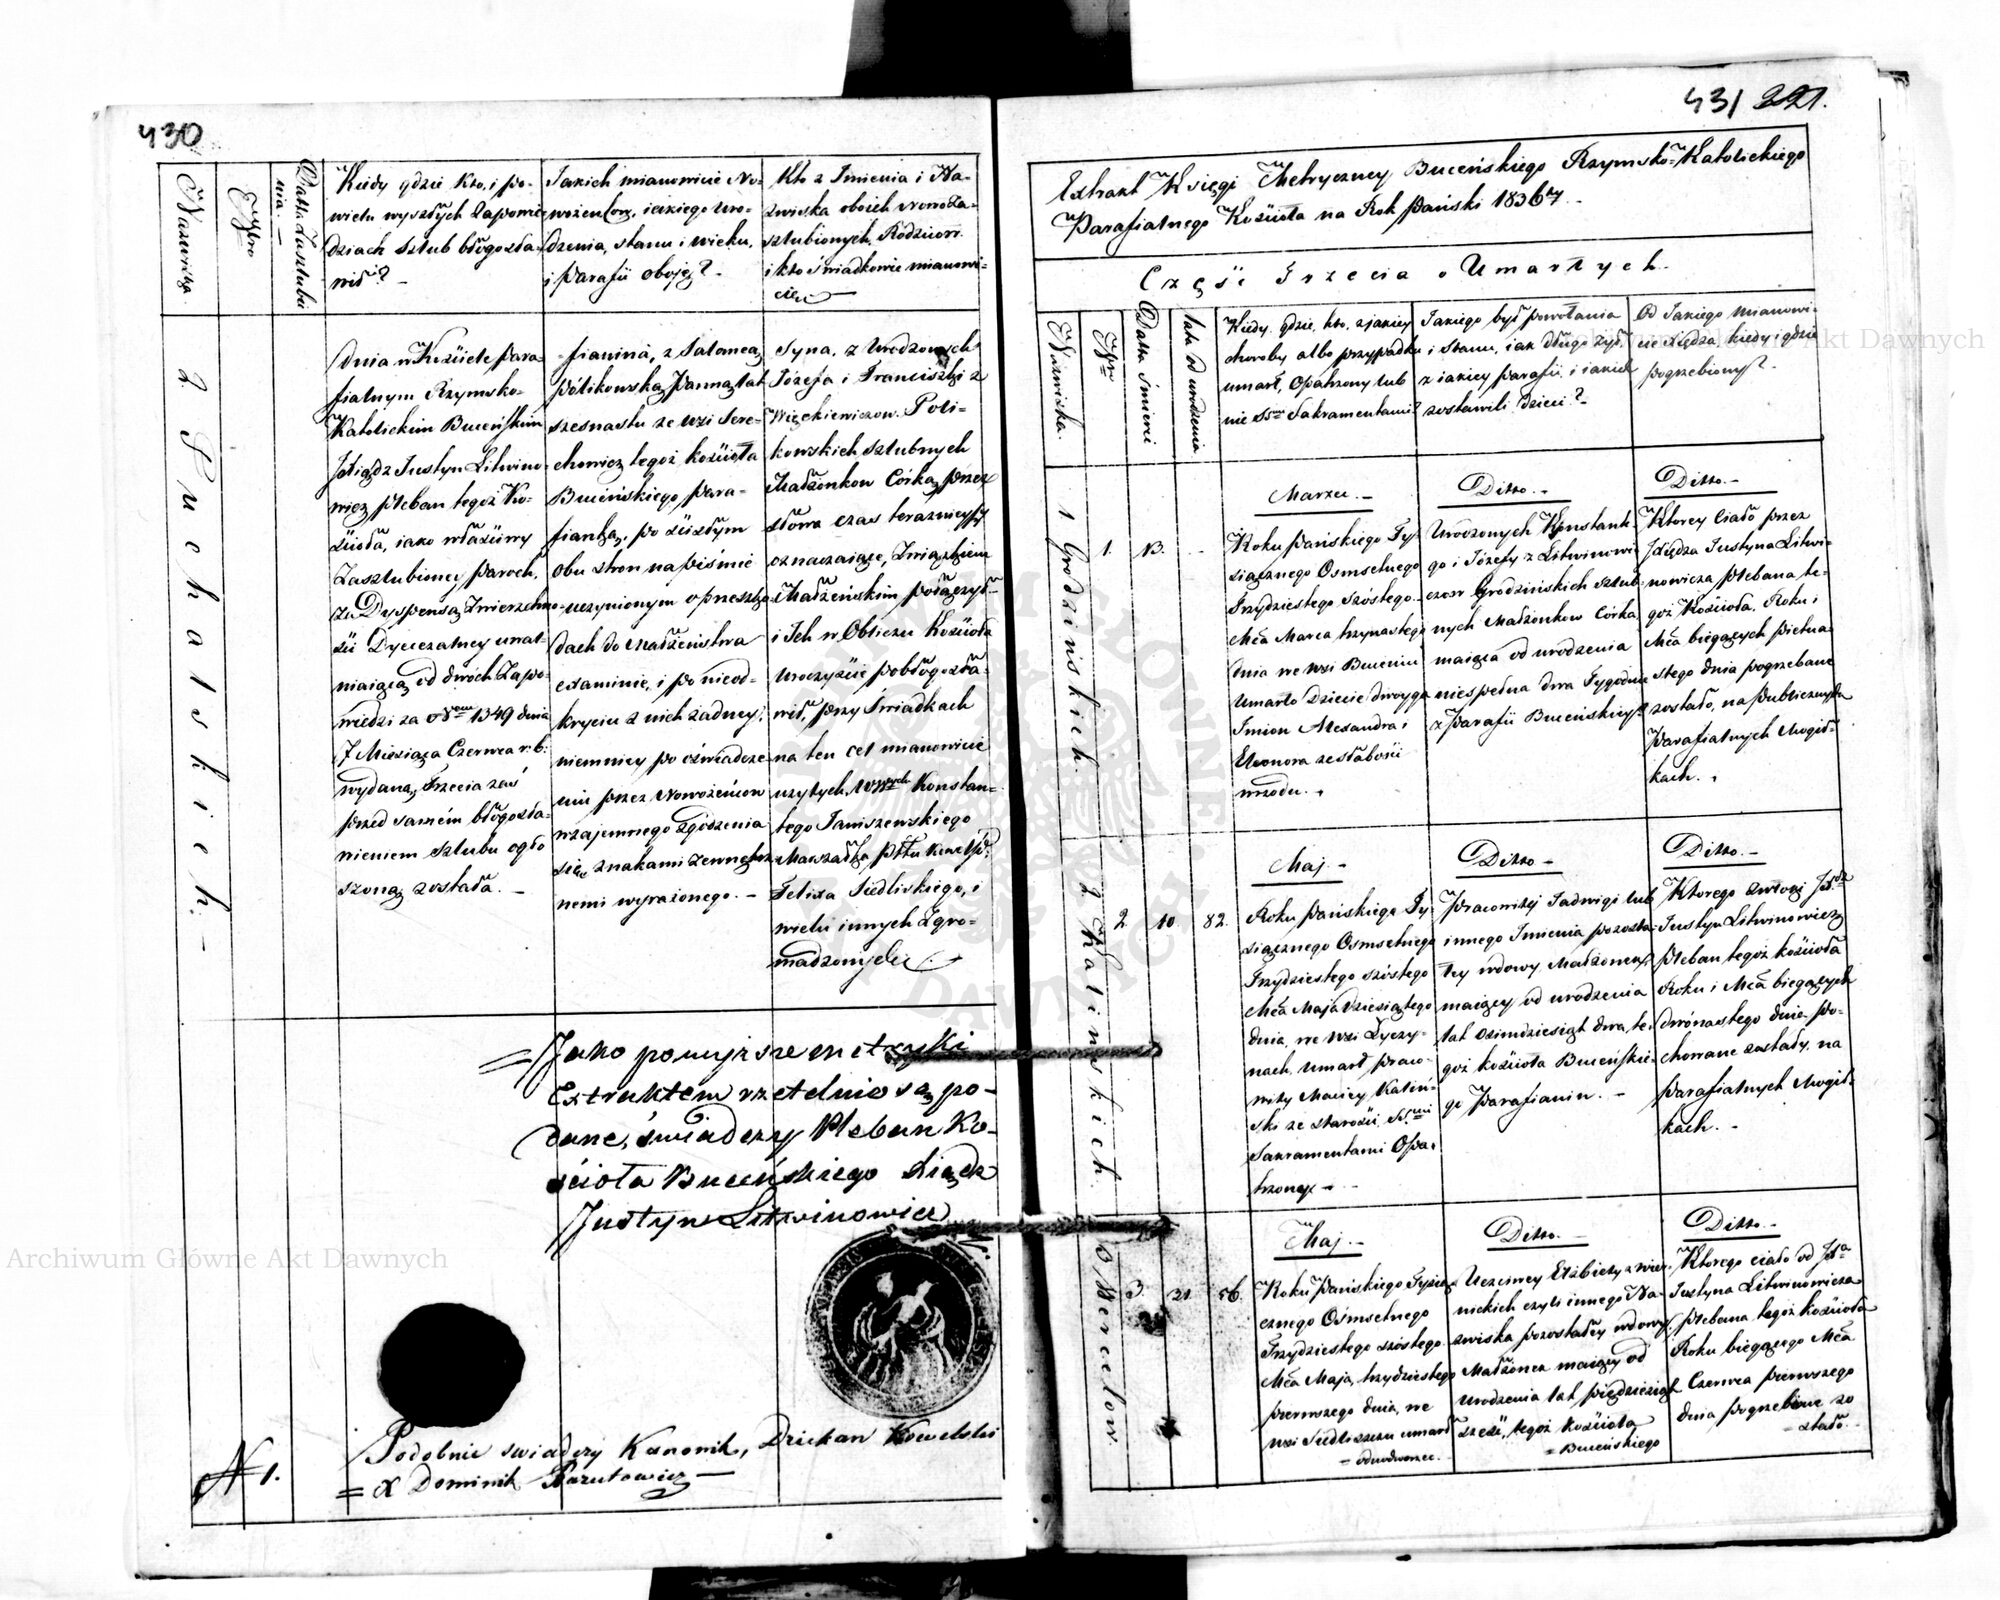 430
Nazwiska
Nro
Data Zaszlubienia.
Kiedy gdzie Kto, i po
wielu wyszłych Zapowie
dziach Szlub błogosła
wił? —
Jakich mianowicie No-
wożeńcow, iakiego Uro-
dzenia, stanu i wieku,
i Parafii oboje? -
Kto z Imienia i Na-
zwiska oboich nowoza-
szlubionych, Rodzicow
i kto Świadkowie mianowi-
cie,
2 Puchalskich. —
dnia w Kościele Para-
fialnym Rzymsko-
Katolickim Buceńskim
Xiądz Justyn Litwino-
wicz Pleban tegoż Ko-
ścioła, iako właściwy
Zaszlubioney Paroch,
za Dyspensą Zwierzchno-
ści Dyecezalney uwal-
niaiącą od dwóch Zapo-
wiedzi za Nrem 1349 dnia
7 Miesiąca Czerwca r. b.
wydaną, Trzecia zaś
przed samém błogosła-
wieniem szlubu ogło
szoną została. —
fianina, z Salomeą
Polikowską Panną lat
szesnastu ze wsi Sere-
chowicz tegoż kościoła
Buceńskiego Para-
fianką, po ścisłym
obu stron na piśmie
uczynionym o przeszko-
dach do małżeństwa
examinie, i po nieod-
kryciu z nich żadney,
niemniey po oświadcze-
niu przez Nowożeńcow
wzajemnego zgodzenia
się, znakami zewnętrz
nemi wyrażonego. —
Syna, z Urodzonych
Józefa i Franciszki z
Więckiewiczow Poli-
kowskich szlubnych
Małżonkow Córkę, przez
słowa czas teraznieyszy
oznaczaiące, Związkiem
Małżeńskim połączył
i Ich w Obliczu Kościoła
Uroczyście pobłogosła-
wił, przy Świadkach
na ten cel mianowicie
użytych, WWnych Konstan-
tego Janiszewskiego
Marszałka Pttu
Felixa Siedliskiego, i
wielu innych Zgro-
madzonych.
Jako powyższe metryki
Extraktem rzetelnie są po-
dane, świadczy Pleban Ko-
ścioła Buceńskiego Xiądz
Justyn Litwinowicz
Podobnie swiadczy Kanonik, Dziekan Kowelski
= X Dominik Pazutowicz —
N 1.
431 221.
Extrakt Księgi Metryczney Buceńskiego Rzymsko-Katolickiego
Parafialnego Kościoła na Rok Pański 1836ty. -
Część Trzecia o Umarłych.
Nazwiska.
Nro
Data Śmierci
lata od urodzenia
Kiedy, gdzie, kto, z jakiey
choroby albo przypadku
umarł, Opatrzony lub
nie SSmi Sakramentami?
Jakiego był powołania
i stanu, iak długo żył,
z iakiey Parafii, i iakich
zostawił dzieci? -
Od Jakiego mianowi-
cie Xiędza, kiedy i gdzie
pogrzebiony? -
1 Grodzińskich.
1.
13.
Marzec. —
Roku Pańskiego Ty-
siącznego Osmsetnego
Trzydziestego Szóstego
Mca Marca trzynastego
dnia we wsi Buceniu
Umarło Dziecie dwoyga
Imion Alexandra i
Eleonora ze słabości
wrzodu. .
Ditto. -
Urodzonych Konstant-
go i Józefy z Litwinowi-
czow Grodzińskich szlub-
nych Małżonkow Córka,
maiąca od urodzenia
niespełna dwa Tygodnie
z Parafii Buceńskiey.
Ditto. —
Ktorey Ciało przez
Xiędza Justyna Litwi-
nowicza Plebana te-
goż Kościoła, Roku i
Mca bieżących pietna-
stego dnia pogrzebane
zostało, na Publicznych
Parafialnych Mogił-
kach. .
2 Kalińskich.
2
10
82.
Maj. —
Roku Pańskiego Ty-
siącznego Osmsetnego
Trzydziestego szóstego
Mca Maja dziesiątego
dnia, we wsi Łyczy-
nach, umarł praco-
wity Maciey Kaliń-
ski ze starości, SSmi
Sakramentami Opa-
trzony. —
Ditto —
Pracowitej Jadwigi lub
innego Imienia pozosta-
łey wdowy, Małżonek,
maiący od urodzenia
lat ośmdziesiąt dwa, te-
goż kościoła Buceńskie-
go Parafianin. —
Ditto. —
Ktorego zwłoki Xdz
Justyn Litwinowicz
Pleban tegoż kościoła
Roku i Mca bieżących
dwónastego dnia, po-
chowane zostały, na
Parafialnych Mogił-
kach. -
3 Bercelow.
3.
31
56.
Maj. —
Roku Pańskiego Tysią-
cznego Ośmsetnego
Trzydziestego szóstego
Mca Maja, trzydziestego
pierwszego dnia, we
wsi Siedliszczu umarł
Ditto. —
Uczciwey Elżbiety z Wier-
nickich czyli innego Na-
zwiska pozostałey wdowy,
Małżonek maiący od
urodzenia lat pięćdziesiąt
sześć, tegoż kościoła
= Buceńskiego
Ditto. —
Ktorego ciało od Xa
Justyna Litwinowicza
Plebana tegoż kościoła
Roku bieżącego Mca
Czerwca pierwszego
dnia pogrzebione zo
= stało. -
Archiwum Główne Akt Dawnych
Archiwum Główne Akt Dawnych